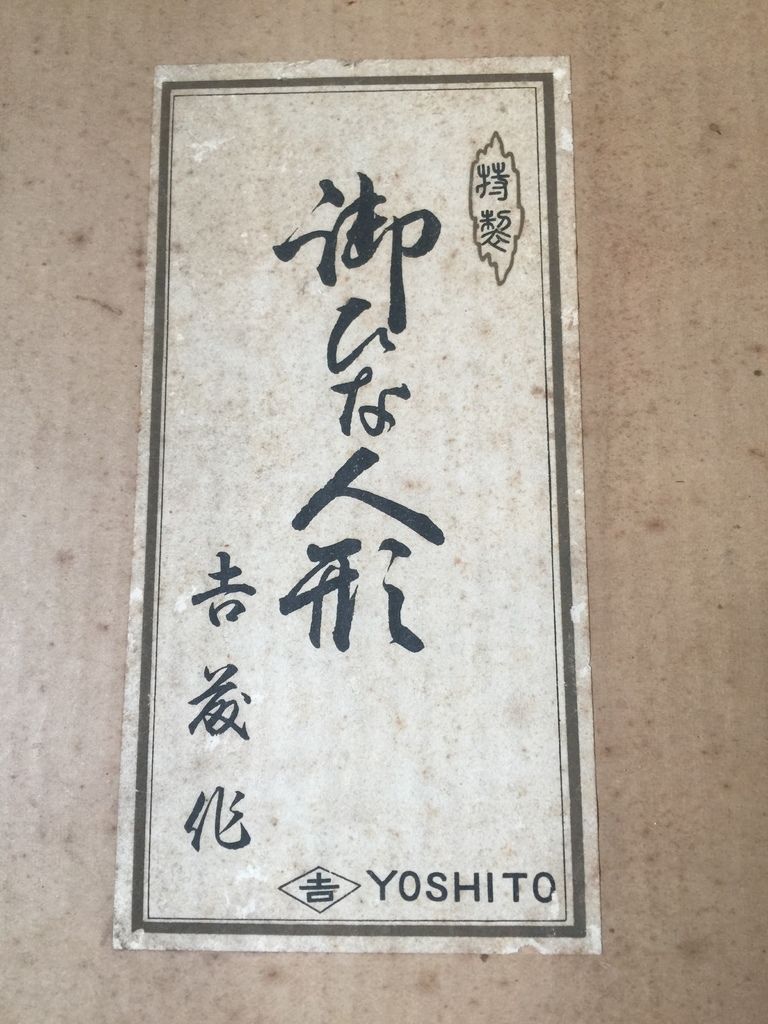 特製
御ひな人形
吉茂作
吉 YOSHITO